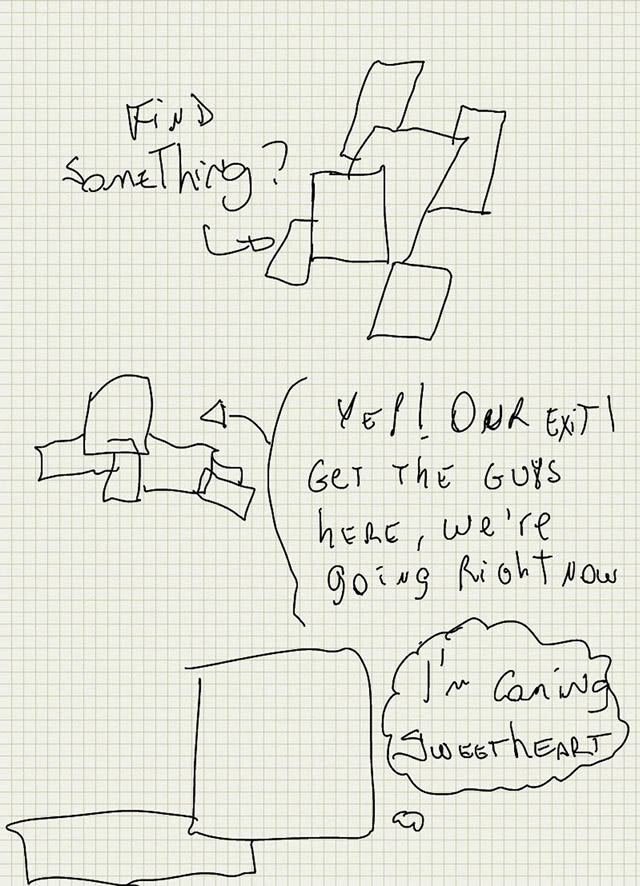 FIND
SOMETHING?
YEP! OUR EXIT!
GET THE GUYS
HERE, WE'RE
GOING RIGHT NOW
I'M COMING
SWEETHEART